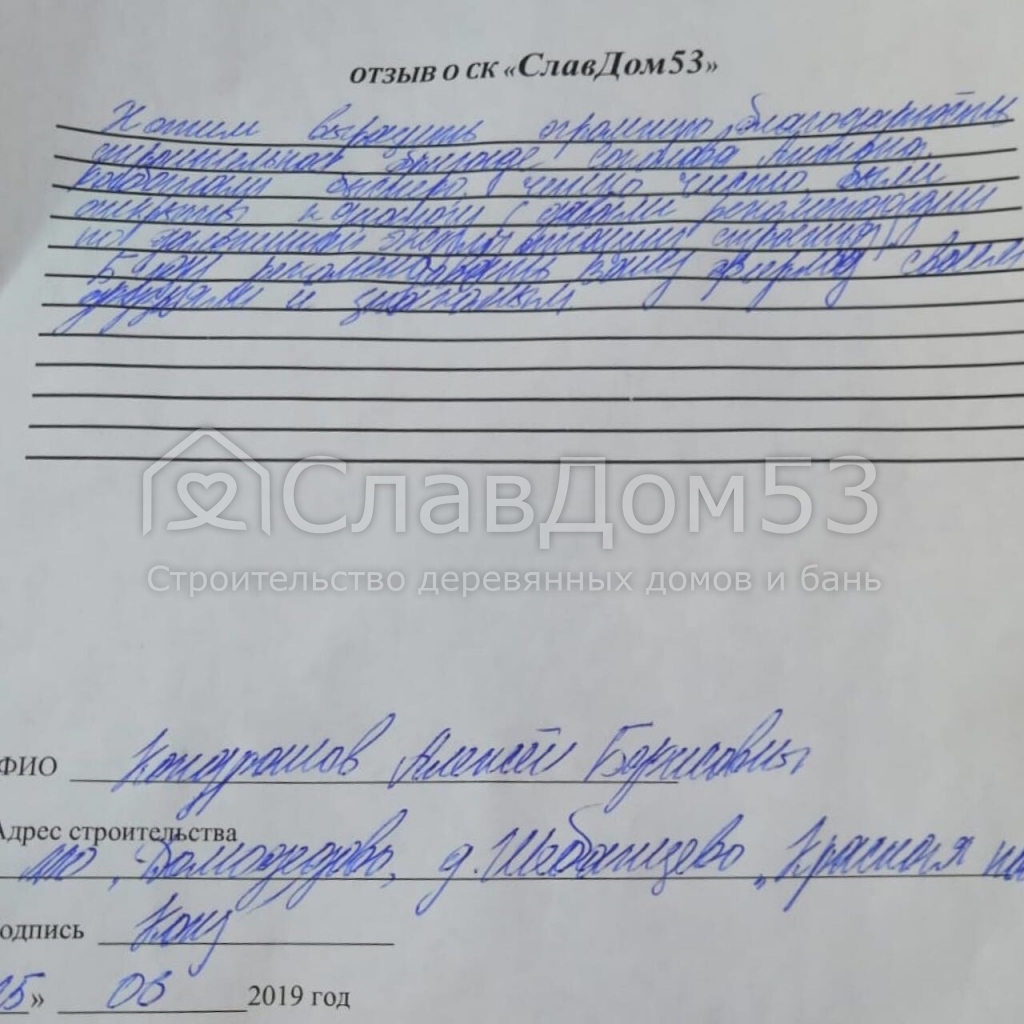 ОТЗЫВ О СК «СлавДом53»
Хотим выразить огромную благодарность
строительной бригаде Соловьева Андрея.
Работали быстро, четко, чисто, были
открыты к диалогу с давали рекомендации
по дальнейшей эксплуатации строения.
Буду рекомендовать вашу фирму своим
друзьям и знакомым
СлавДом53
Строительство деревянных домов и бань
ФИО Кондрашов Алексей Борисович
Адрес строительства
МО, Домодедово, д. Шебанцево „Красная
одпись Конд
05» 06 2019 год